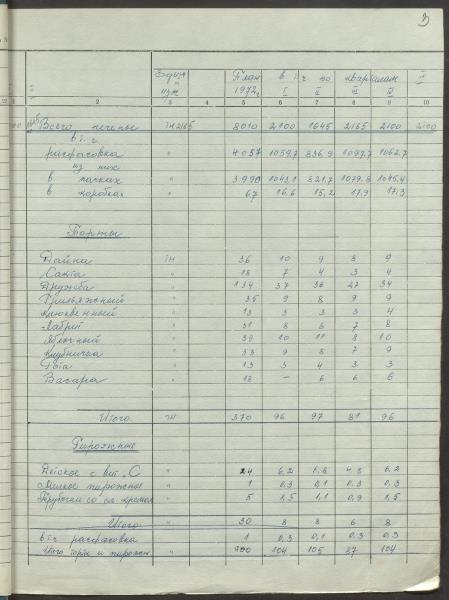 3
Един. изм. План 1972г. в т.ч. по кварталам
I II III IV
2 3 4 5 6 7 8 9 10
Всего печенье тн 8010 2100 1645 2165 2100
в т.ч.
расфасовка " 4057 1059,7 836,9 1097,7 1062,7
из них
в пачках " 3990 1043,1 821,7 1079,8 1045,4
в коробках " 67 16,6 15,2 17,9 17,3
Торты
Дайна тн 36 10 9 8 9
Сакта " 18 7 4 3 4
Дружба " 134 37 36 27 34
Грильяжный " 35 9 8 9 9
Клюквенный " 13 3 3 3 4
" 31 8 8 7 8
Яблочный " 39 10 11 8 10
Клубничка " 33 9 8 7 9
Рога " 13 3 4 3 3
Васара " 18 – 6 6 6
Итого тн 370 96 97 81 96
Пирожные
Детское с вит. С " 24 6,2 6,8 4,8 6,2
Мелкое пирожное " 1 0,3 0,1 0,3 0,3
Трубочки со сл. кремом " 5 1,5 1,1 0,9 1,5
Итого " 30 8 8 6 8
в т.ч. расфасовка " 1 0,3 0,1 0,3 0,3
Итого торты и пирожн. " 400 104 105 87 104